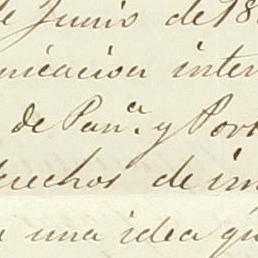 de Junio de 18
nicacion inter
de Pan.ª y Por
derechos de im
una idea qu